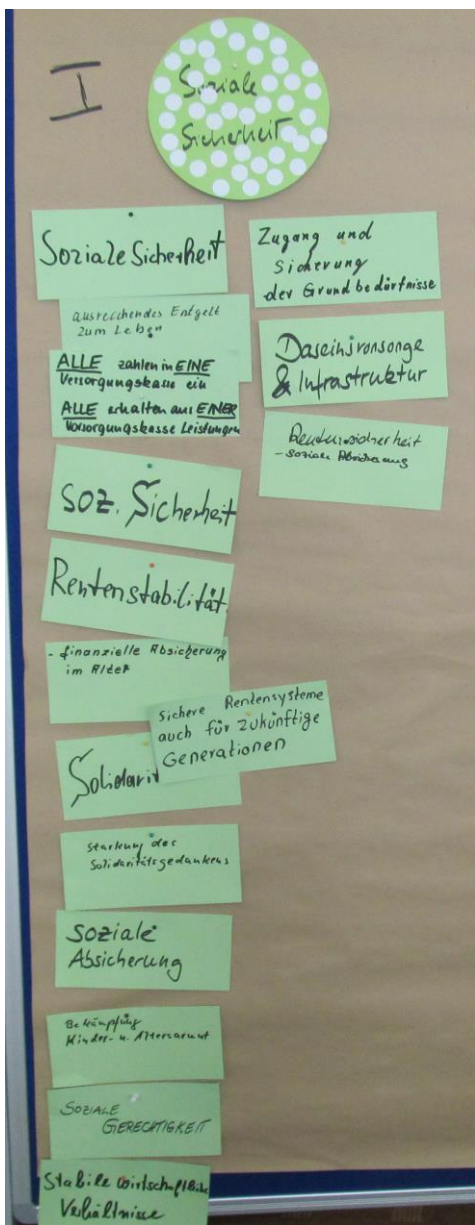 I
Soziale
Sicherheit
Soziale Sicherheit
ausreichendes Entgelt
zum Leben
ALLE zahlen in EINE
Versorgungskasse ein
ALLE erhalten aus EINER
Versorgungskasse Leistungen
SOZ. Sicherheit
Rentenstabilität
- finanzielle Absicherung
im Alter
Sichere Rentensysteme
auch für zukünftige
Generationen
Solidari
Stärkung des
Solidaritätsgedankens
Soziale
Absicherung
Bekämpfung
Kinder- u. Altersarmut
SOZIALE
GERECHTIGKEIT
Stabile wirtschaftliche
Verhältnisse
Zugang und
Sicherung
der Grundbedürfnisse
Daseinsvorsorge
& Infrastruktur
Rentensicherheit
- soziale Absicherung